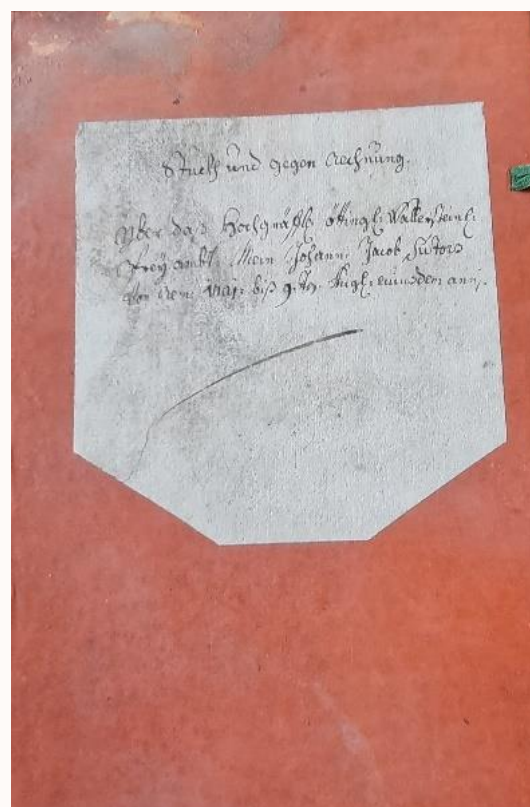 Stuckh und gegen Rechnung.
Über daß Hochgräffl: Öttingl: Wallersteinl:
Freÿ ambt Mein Johann Jacob Sutors
Von dem Maji biß 9. Augl: eiusdem anni.